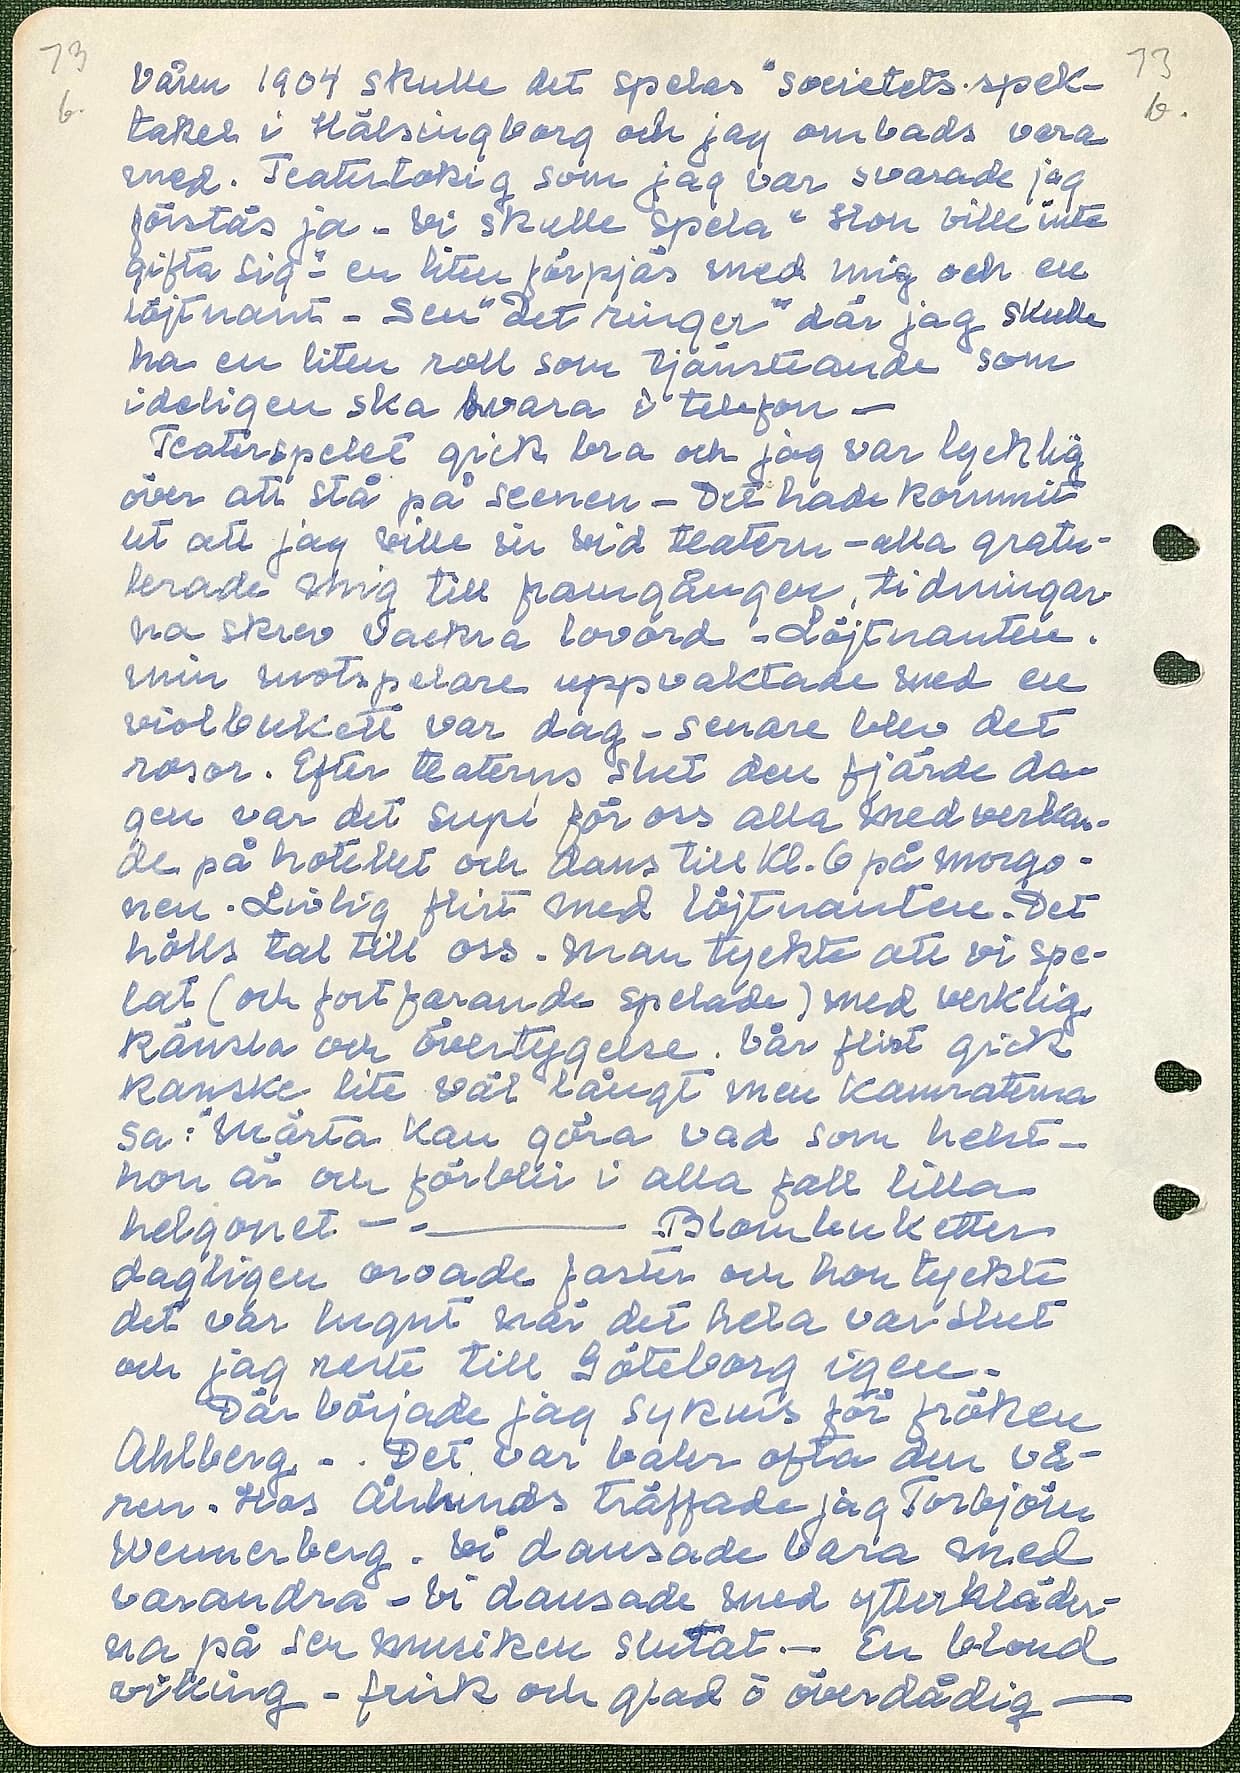 73 73
b. b.
Våren 1904 skulle det spelas "societets-spek-
takel i Hälsingborg och jag ombads vara
med. Teatertokig som jag var svarade jag
förstås ja - Vi skulle spela "Hon ville inte
gifta sig" - en liten förpjäs med mig och en
löjtnant - Sen "Det ringer" där jag skulle
ha en liten roll som tjänsteande som
ideligen ska svara i telefon —
Teaterspelet gick bra och jag var lycklig
över att stå på scenen - Det hade kommit
ut att jag ville in vid teatern - alla gratu-
lerade mig till framgången, tidningar-
na skrev vackra lovord - Löjtnanten.
min motspelare uppvaktade med en
violbukett var dag - senare blev det
rosor. Efter teaterns slut den fjärde da-
gen var det supé för oss alla medverkan-
de på hotellet och dans till kl. 6 på morgo-
nen. Livlig flirt med löjtnanten. Det
hölls tal till oss - man tyckte att vi spe-
lat (och fortfarande spelade) med verklig
känsla och övertygelse. Vår flirt gick
kanske lite väl långt men kamraterna
sa: "Märta kan göra vad som helst -
hon är och förblir i alla fall lilla
helgonet - - — Blombuketter
dagligen oroade faster och hon tyckte
det var lugnt när det hela var slut
och jag reste till Göteborg igen -
Där började jag sy kuis för fröken
Ahlberg. - . Det var baler ofta den vå-
ren. Hos Åhlunds träffade jag Torbjörn
Wennerberg. Vi dansade bara med
varandra - Vi dansade med ytterkläder-
na på sen musiken slutat. - En blond
viking - frisk och glad o överdådig —